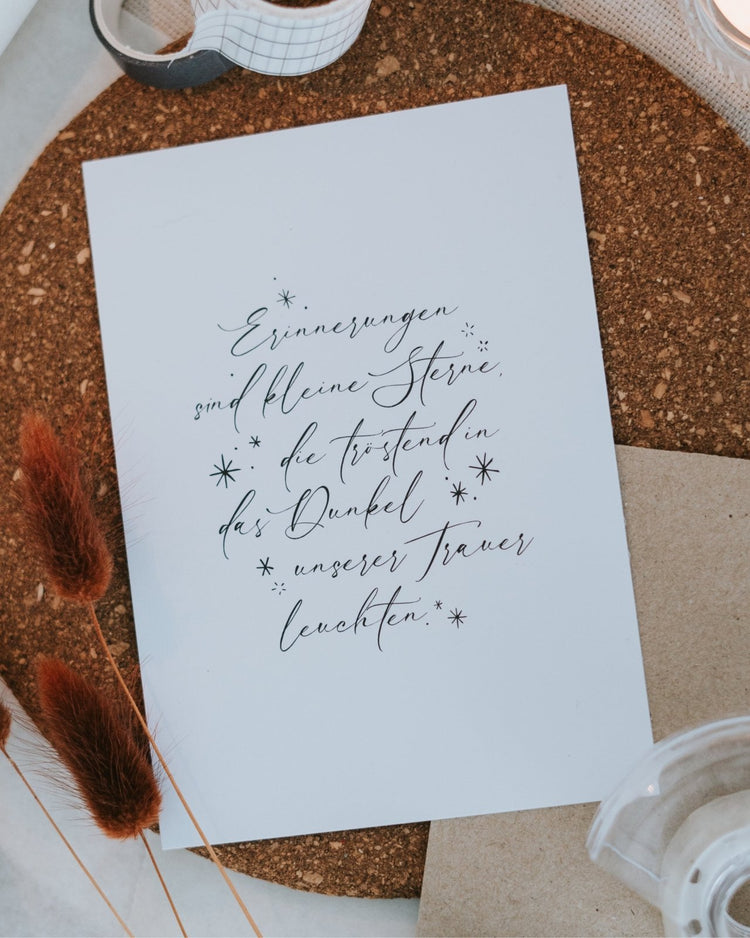 Erinnerungen
sind kleine Sterne,
die tröstend in
das Dunkel
unserer Trauer
leuchten.